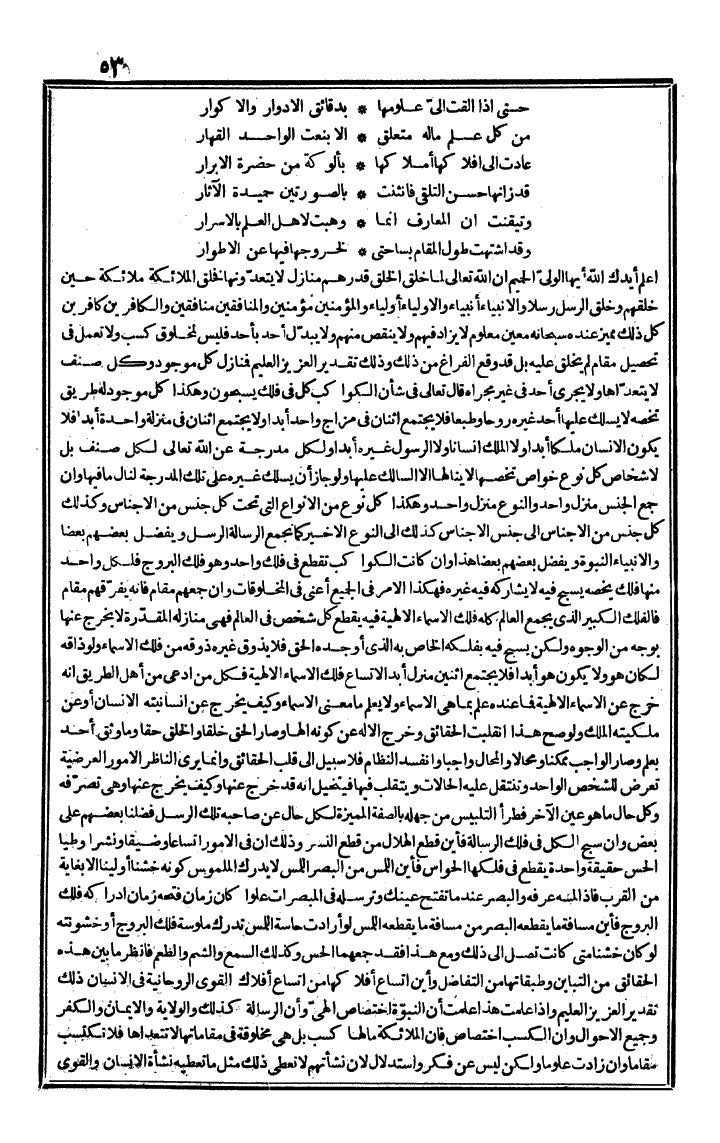 ٥٣
حتى اذا القت الىّ علومها * بدقائق الادوار والاكوار
من كل علم ماله متعلق * الا بنعت الواحد القهار
عادت الى افلاكها أملاكها * بألوكة من حضرة الابرار
قد زانها حسن التلقى فانثنت * بالصورتين حميدة الآثار
وتيقنت ان المعارف انما * وهبت لاهل العلم بالاسرار
وقد اشتهت طول المقام بساحتى * لخروجها فيها عن الاطوار
اعلم أيدك الله أيها الولىّ الحيم ان الله تعالى لما خلق الخلق قدرهم منازل لا يتعدّونها فخلق الملائكة ملائكة حين
خلقهم وخلق الرسل رسلا والانبياء أنبياء والاولياء أولياء والمؤمنين مؤمنين والمنافقين منافقين والكافرين كافرين
كل ذلك مميز عنده سبحانه معين معلوم لا يزاد فيهم ولا ينقص منهم ولا يبدّل أحد بأحد فليس لمخلوق كسب ولا تعمل فى
تحصيل مقام لم يخلق عليه بل قد وقع الفراغ من ذلك وذلك تقدير العزيز العليم فمنازل كل موجود وكل صنف
لا يتعدّاها ولا يجرى أحد فى غير مجراه قال تعالى فى شأن الكواكب كل فى فلك يسبحون وهكذا كل موجود له طريق
تخصه لا يسلك عليها أحد غيره روحا وطبعا فلا يجتمع اثنان فى مزاج واحد أبدا ولا يجتمع اثنان فى منزلة واحدة أبدا فلا
يكون الانسان ملكا أبدا ولا الملك انسانا ولا الرسول غيره أبدا ولكل مدرجة عن الله تعالى لكل صنف بل
لاشخاص كل نوع خواص تخصها لا ينالها الا السالك عليها ولو جاز أن يسلك غيره على تلك المدرجة لنال ما فيها وان
جمع الجنس منزل واحد والنوع منزل واحد وهكذا كل نوع من الانواع التى تحت كل جنس من الاجناس وكذلك
كل جنس من الاجناس الى جنس الاجناس كذلك الى النوع الاخير كما تجمع الرسالة الرسل ويفضل بعضهم بعضا
والانبياء النبوة ويفضل بعضهم بعضا هذا وان كانت الكواكب تقطع فى فلك واحد وهو فلك البروج فلكل واحد
منها فلك يخصه يسبح فيه لا يشاركه فيه غيره فهكذا الامر فى الجميع أعنى فى المخلوقات وان جمعهم مقام فانه يفرّقهم مقام
فالفلك الكبير الذى يجمع العالم كله فلك الاسماء الالهية فيه يقطع كل شخص فى العالم فهى منازله المقدّرة لا يخرج عنها
بوجه من الوجوه ولكن يسبح فيه بفلكه الخاص به الذى أوجده الحق فلا يذوق غيره ذوقه من فلك الاسماء ولو ذاقه
لكان هو ولا يكون هو أبدا فلا يجتمع اثنين منزل أبدا لاتساع فلك الاسماء الالهية فكل من ادعى من أهل الطريق انه
خرج عن الاسماء الالهية فما عنده علم بما هى الاسماء ولا يعلم ما معنى الاسماء وكيف يخرج عن انسانيته الانسان أو عن
ملكيته الملك ولو صح هذا انقلبت الحقائق وخرج الاله عن كونه الها وصار الحق خلقا والخلق حقا وما وثق أحد
بعلم وصار الواجب ممكنا ومحالا والمحال واجبا وانفسد النظام فلا سبيل الى قلب الحقائق وانما يرى الناظر الامور العرضية
تعرض للشخص الواحد وتنتقل عليه الحالات ويتقلب فيها فيتخيل انه قد خرج عنها وكيف يخرج عنها وهى تصرّفه
وكل حال ما هو عين الآخر فطرأ التلبيس من جهله بالصفة المميزة لكل حال عن صاحبه تلك الرسل فضلنا بعضهم على
بعض وان سبح الكل فى فلك الرسالة فأين قطع الهلال من قطع النسر وذلك ان فى الامور اتساعا وضيقا ونشرا وطيا
الحس حقيقة واحدة يقطع فى فلكها الحواس فأين اللمس من البصر اللمس لا يدرك الملموس كونه خشنا أو لينا الا بغاية
من القرب فاذا لمسه عرفه والبصر عندما تفتح عينك وترسله فى المبصرات علوا كان زمان فتحه زمان ادراكه فلك
البروج فأين مسافة ما يقطعه البصر من مسافة ما يقطعه اللمس لو أرادت حاسة اللمس تدرك ملوسة فلك البروج أو خشونته
لو كان خشنا متى كانت تصل الى ذلك ومع هذا فقد جمعهما الحس وكذلك السمع والشم والطعم فانظر ما بين هذه
الحقائق من التباين وطبقاتها من التفاضل وأين اتساع أفلاكها من اتساع أفلاك القوى الروحانية فى الانسان ذلك
تقدير العزيز العليم واذا علمت هذا علمت أن النبوّة اختصاص الهىّ وأن الرسالة كذلك والولاية والايمان والكفر
وجميع الاحوال وان الكسب اختصاص فان الملائكة مالها كسب بل هى مخلوقة فى مقاماتها لا تتعداها فلا تكتسب
مقاما وان زادت علوما ولكن ليس عن فكر واستدلال لان نشأتهم لا تعطى ذلك مثل ما تعطيه نشأة الانسان والقوى